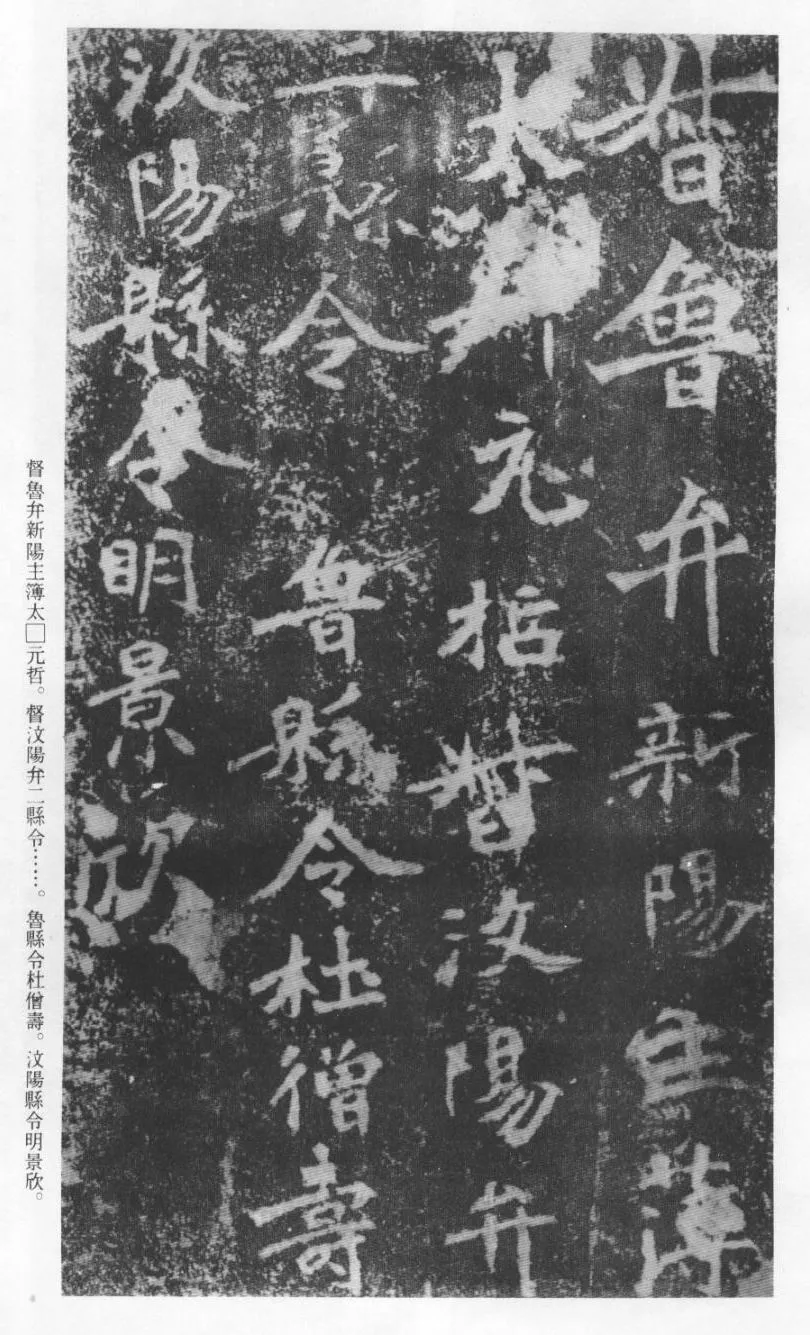 督魯弁新陽主簿
太□元哲督汶陽弁
二縣令 魯縣令杜僧壽
汶陽縣令明景欣
督魯弁新陽主簿太□元哲。督汶陽弁二縣令……。魯縣令杜僧壽。汶陽縣令明景欣。